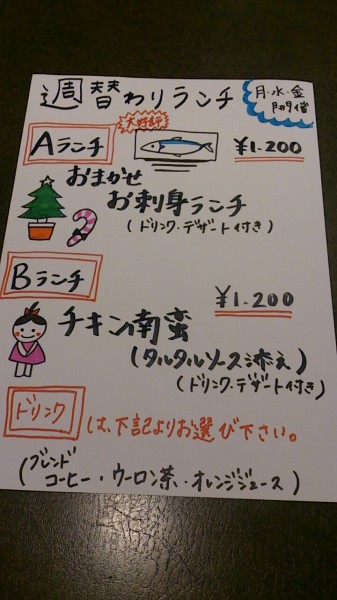 週替わりランチ
月・水・金
開催
大好評
Aランチ
¥1.200
おまかせ
お刺身ランチ
(ドリンク・デザート付き)
Bランチ
¥1.200
チキン南蛮
(タルタルソース添え)
(ドリンク・デザート付き)
ドリンク は、下記よりお選び下さい。
(ブレンド
コーヒー・ウーロン茶・オレンジジュース)